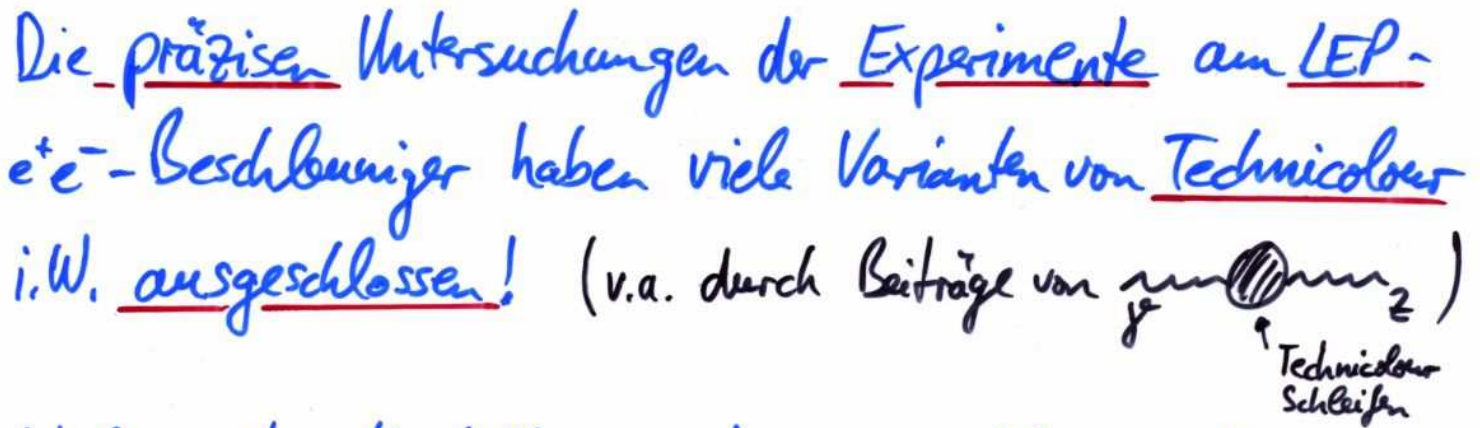 Die präzisen Untersuchungen der Experimente am LEP-
e⁺e⁻-Beschleuniger haben viele Varianten von Technicolour
i.W. ausgeschlossen! (v.a. durch Beiträge von γ Z)
Technicolour
Schleifen